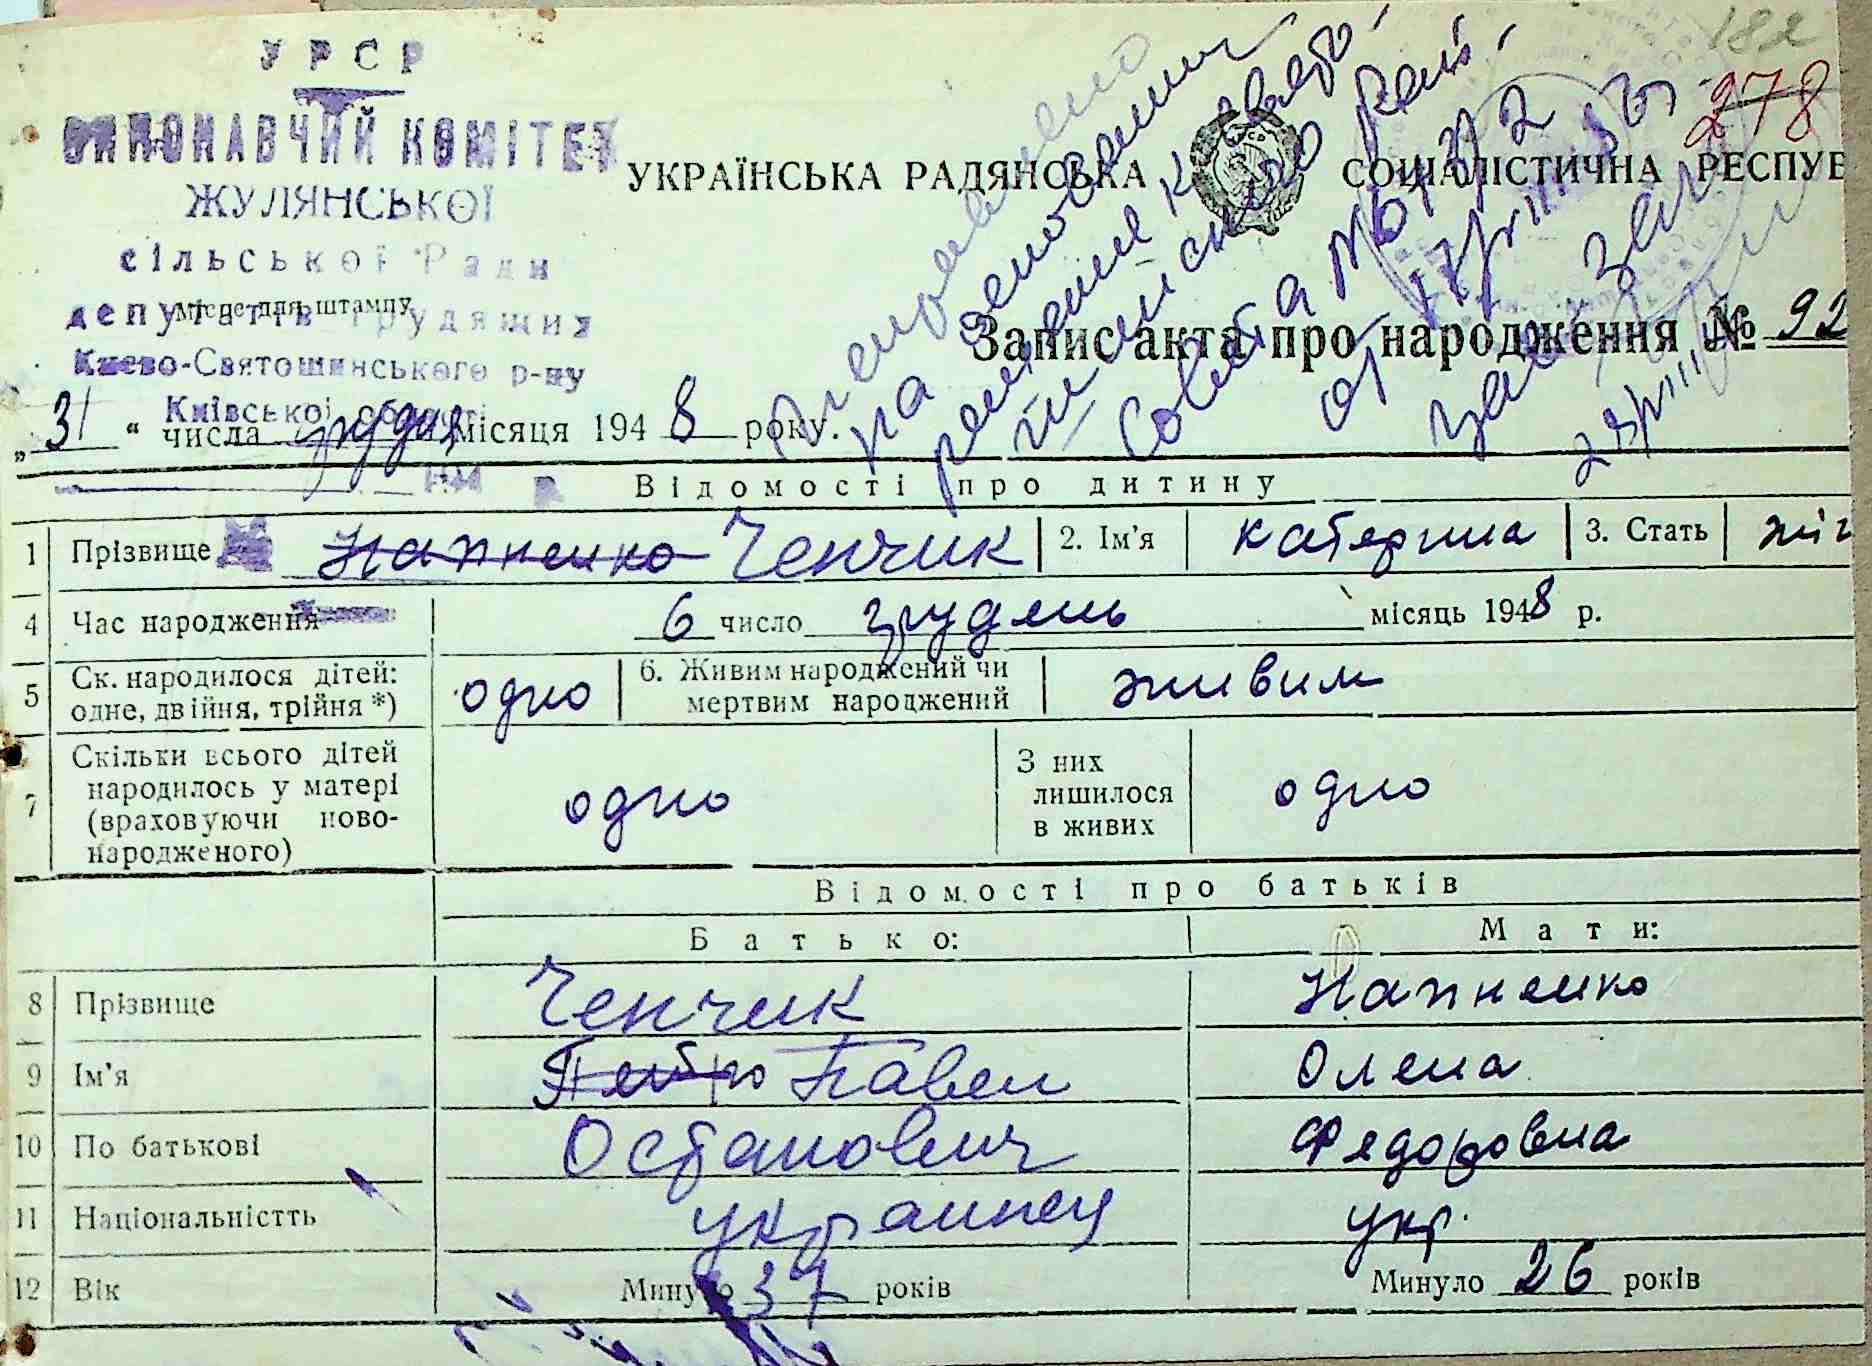 УРСР
ВИКОНАВЧИЙ КОМІТЕТ
ЖУЛЯНСЬКОЇ
сільської Ради
депутатів трудящих
Місце для штампу
Києво-Святошинського р-ну
Київської області
18л
278
УКРАЇНСЬКА РАДЯНСЬКА СОЦІАЛІСТИЧНА РЕСПУБ
на основании
решение К Свято
шинського Рай
Совета
Запис акта про народження № 92
„31“ числа грудня місяця 1948 року.
194 р.
Відомості про дитину
1 Прізвище Напненко Ченчик 2. Ім'я Катерина 3. Стать жін
4 Час народження 6 число грудень місяць 1948 р.
5 Ск. народилося дітей: одне, двійня, трійня *) одно 6. Живим народжений чи мертвим народжений живим
7 Скільки всього дітей народилось у матері (враховуючи ново-народженого) одно З них лишилося в живих одно
Відомості про батьків
Батько: Мати:
8 Прізвище Ченчик Напненко
9 Ім'я Петро Павел Олена
10 По батькові Остапович Федоровна
11 Національністть украинец укр.
12 Вік Минуло 37 років Минуло 26 років